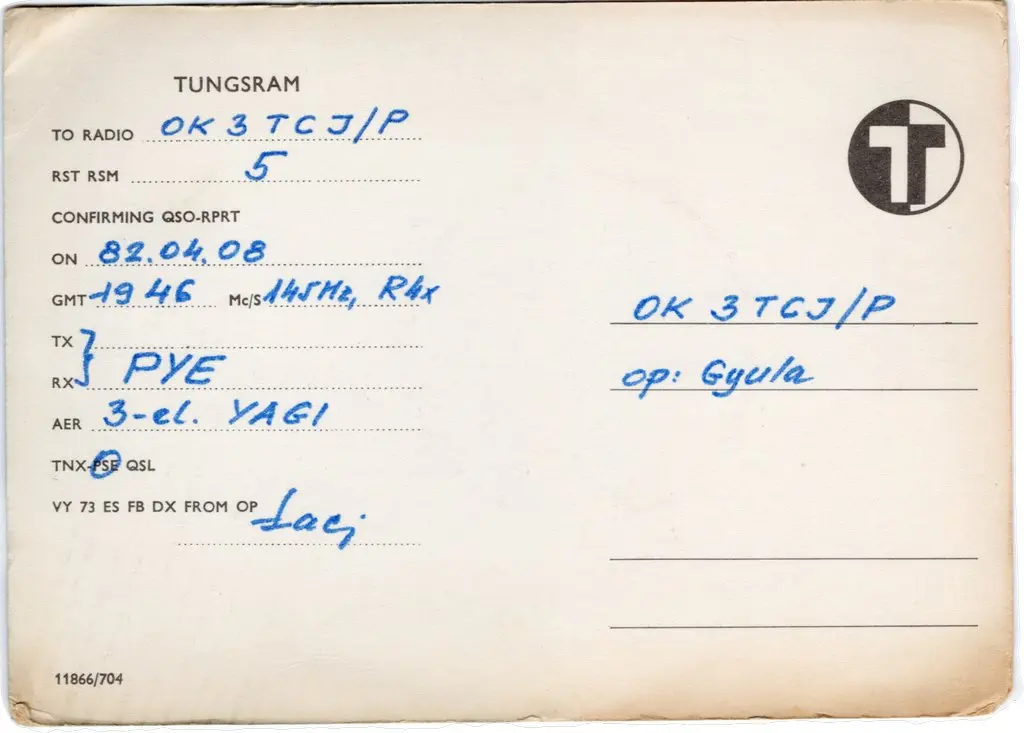 TUNGSRAM
TO RADIO OK 3 TCJ/P
RST RSM 5
CONFIRMING QSO-RPRT
ON 82.04.08
GMT 19 46 Mc/S 145MHz, R4x
TX
RX } PYE
AER 3-el. YAGI
TNX-PSE QSL
VY 73 ES FB DX FROM OP Laci
11866/704
T
OK 3 TCJ/P
op: Gyula